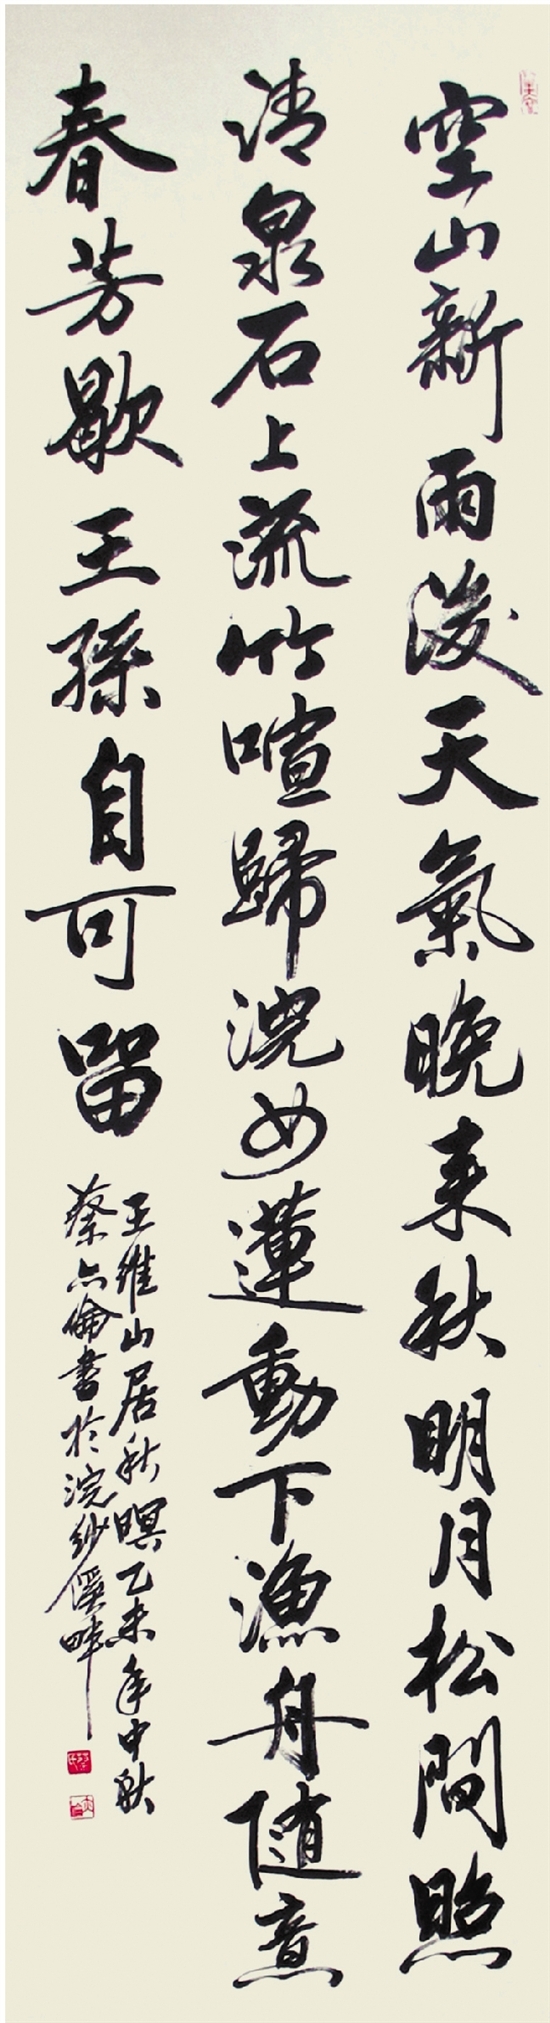 空山新雨後天氣晚来秋明月松間照
清泉石上流竹喧歸浣女蓮動下漁舟随意
春芳歇王孫自可留
王維山居秋暝乙未年中秋
蔡六倫書於浣紗溪畔